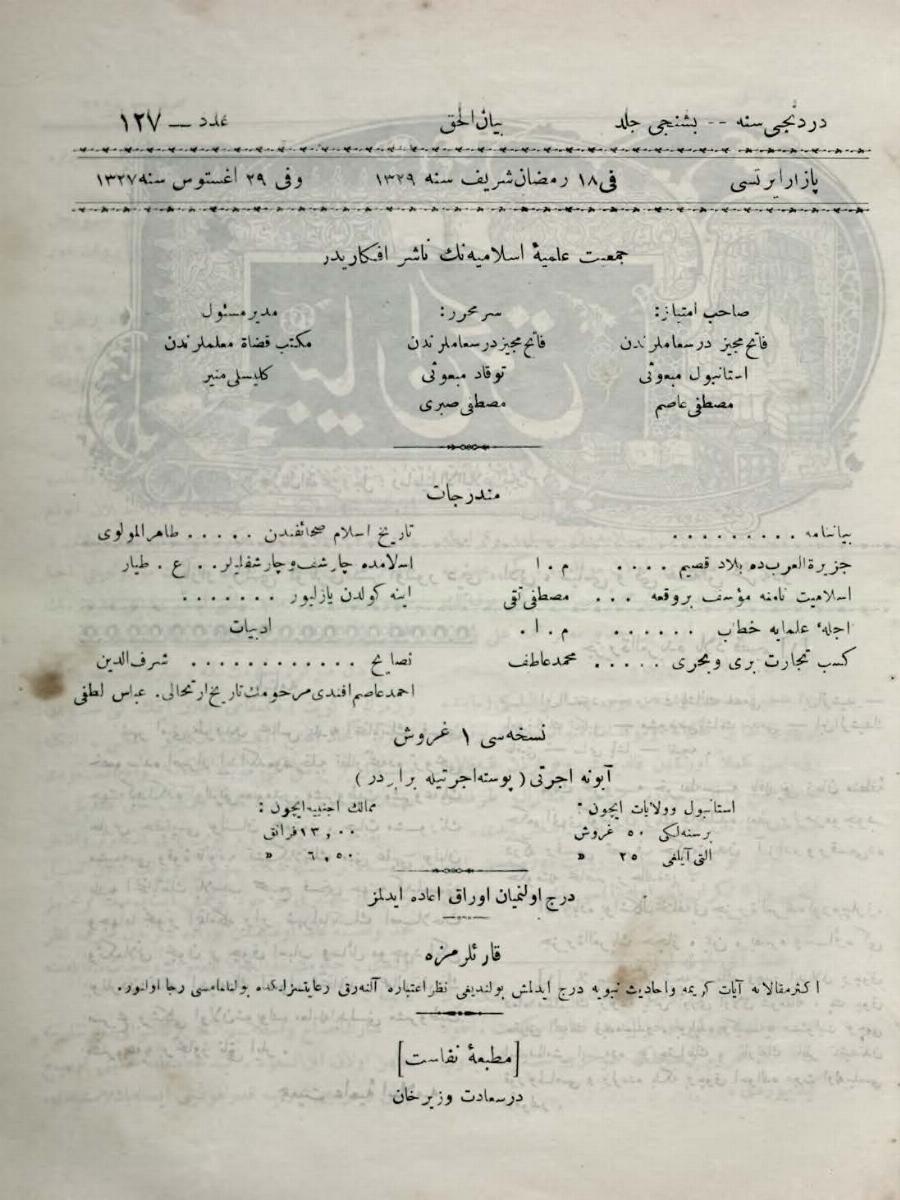 دردنجی سنه -- بشنجی جلد بیان الحق عدد — ١٢٧
پازار ایرتسی فی ١٨ رمضان شریف سنه ١٣٢٩ وفی ٢٩ اغستوس سنه ١٣٢٧
جمعیت علمیهٔ اسلامیه‌نك ناشر افکاریدر
صاحب امتیاز:
فاتح مجیز درسعاملرندن
استانبول مبعوثی
مصطفی عاصم
سر محرر:
فاتح مجیز درسعاملرندن
توقاد مبعوثی
مصطفی صبری
مدیر مسئول
مکتب قضاة معلملرندن
کلیسلی منیر
مندرجات
بیاننامه . . . . . . . . .
جزیرة العرب‌ده بلاد قصیم . . . . م . ا
اسلامیت نامنه مؤسف بر وقعه . . . مصطفی تقی
اجلهٔ علمایه خطاب . . . . . . م . ا .
کسب تجارت بری و بحری . . . . . محمد عاطف
تاریخ اسلام صحائفندن . . . . . طاهر المولوی
اسلامده چارشف و چارشفلیلر . . ع . طیار
اینه کولدن یازلیور . . . . . . .
ادبیات
نصایح . . . . . . . . . . . . شرف الدین
احمد عاصم افندی مرحومك تاریخ ارتحالی . عباس لطفی
نسخه‌سی ١ غروش
آبونه اجرتی ( پوسته اجرتیله برابردر )
استانبول وولایات ایچون :
برسنه‌لکی ٥٠ غروش
التی آیلغی ٢٥ »
ممالك اجنبیه ایچون :
١٣,٠٠ فرانق
٦,٥٠ »
درج اولنمیان اوراق اعاده ایدلمز
قارئلرمزه
اکثر مقالاته آیات کریمه واحادیث نبویه درج ایدلمش بولندیغی نظر اعتباره آلنه‌رق رعایتسزلکده بولنامامسی رجا اولنور .
[ مطبعهٔ نفاست ]
درسعادت وزیرخان